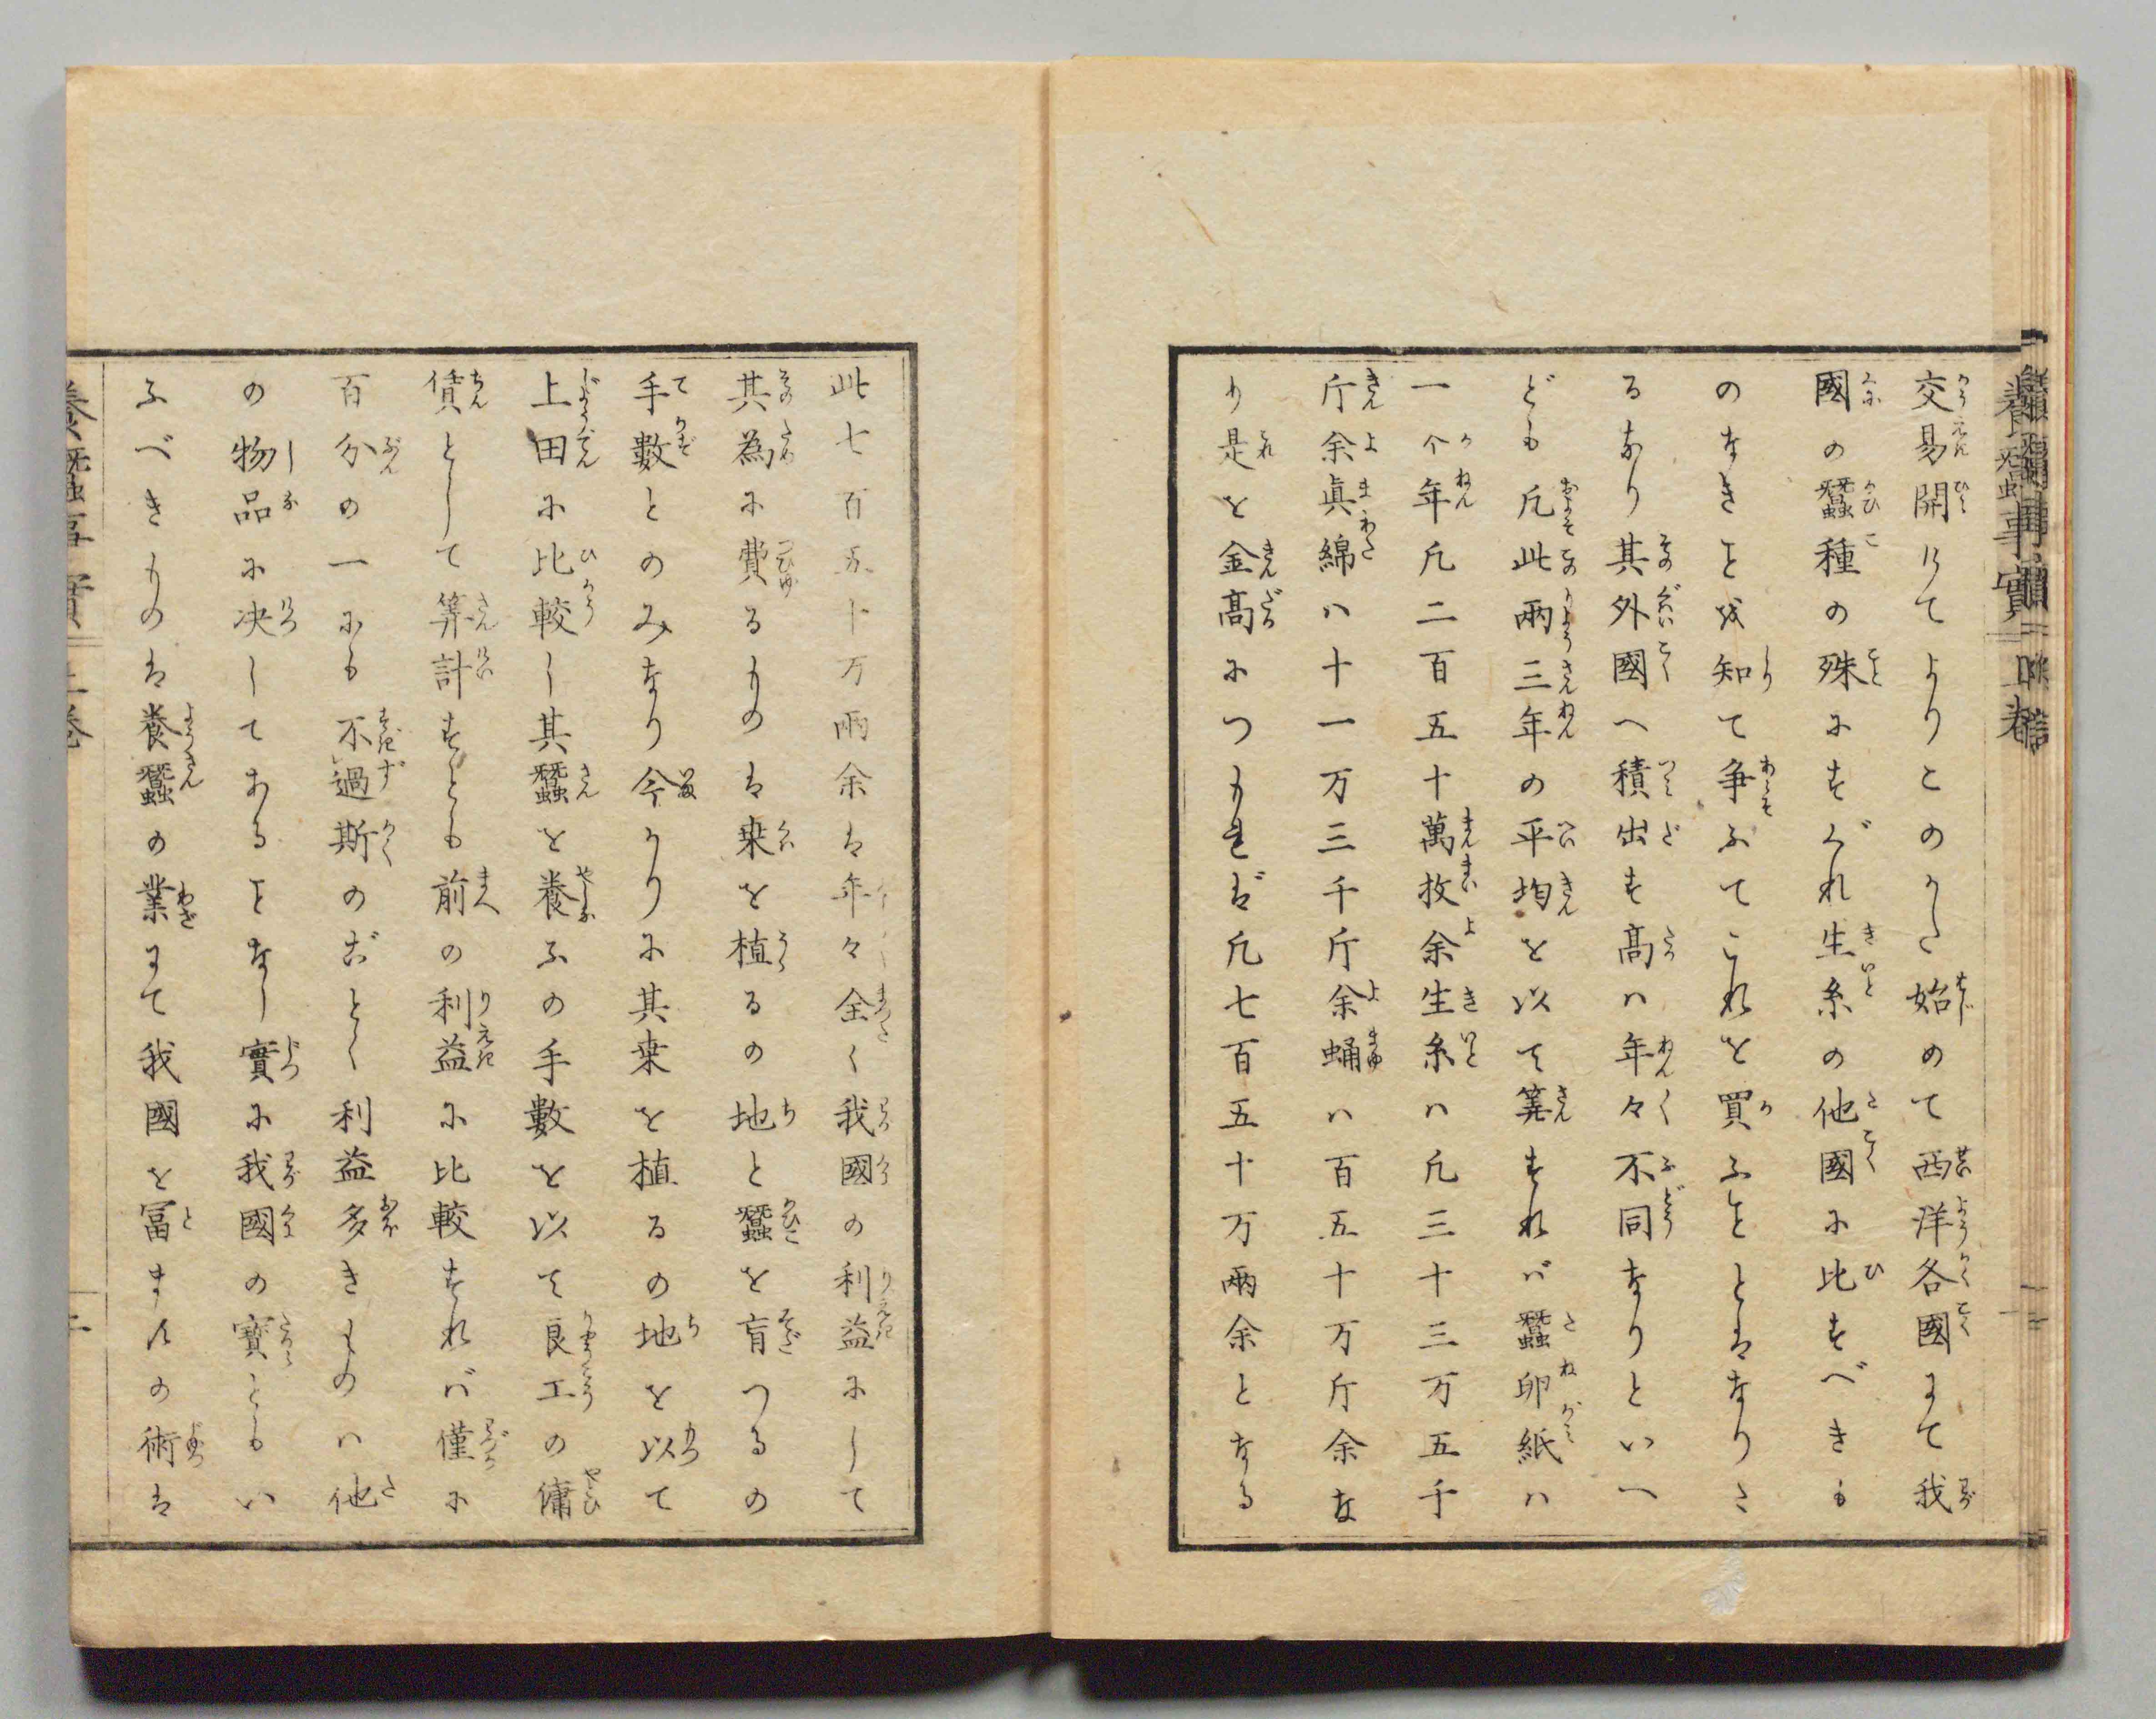 交易開けてよりこのかた始めて西洋各國まて我
國の蚕種の殊にすぐれ生糸の他國に比すべきも
のなきことを知て争ふてこれを買ふことゝはなりさ
るなり其外國へ積出す髙ハ年々不同なりといへ
ども凡此兩三年の平均を以て筭すれバ蚕卵紙ハ
一个年凡二百五十萬枚余生糸ハ凡三十三万五千
斤余眞綿ハ十一万三千斤余蛹ハ百五十万斤余な
り是を金髙につもれば凡七百五十万兩余となる
此七百五十万兩余は年々全く我國の利益にして
其為に費るものは桒を植るの地と蚕を育つるの
手數とのみなり今かりに其桒を植るの地を以て
上田に比較し其蚕を養ふの手數を以て良工の傭
賃として筭計すとも前の利益に比較すれバ僅に
百分の一にも不過斯のごとく利益多きものハ他
の物品に决してあることなし實に我國の寳ともい
ふべきものは養蚕の業まて我國を冨ますの術は